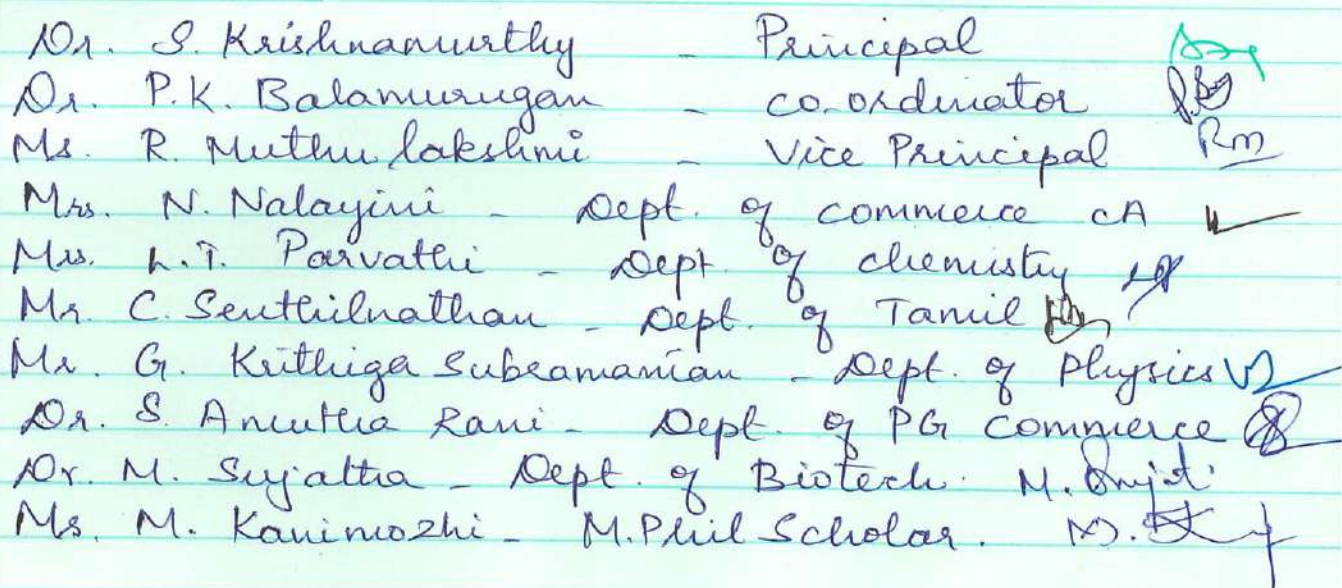 Dr. S. Krishnamurthy - Principal
Dr. P.K. Balamurugan - co-ordinator
Ms. R. Muthu lakshmi - Vice Principal Rm
Mrs. N. Nalayini - Dept. of commerce cA
Mrs. L.T. Parvathi - Dept of chemistry
Mr. C. Senthilnathan - Dept. of Tamil
Mr. G. Krithiga Subramanian - Dept. of Physics
Dr. S. Amutha Rani - Dept. of PG Commerce
Dr. M. Sujatha - Dept. of Biotech. M.
Ms. M. Kanimozhi - M.Phil Scholar. M.